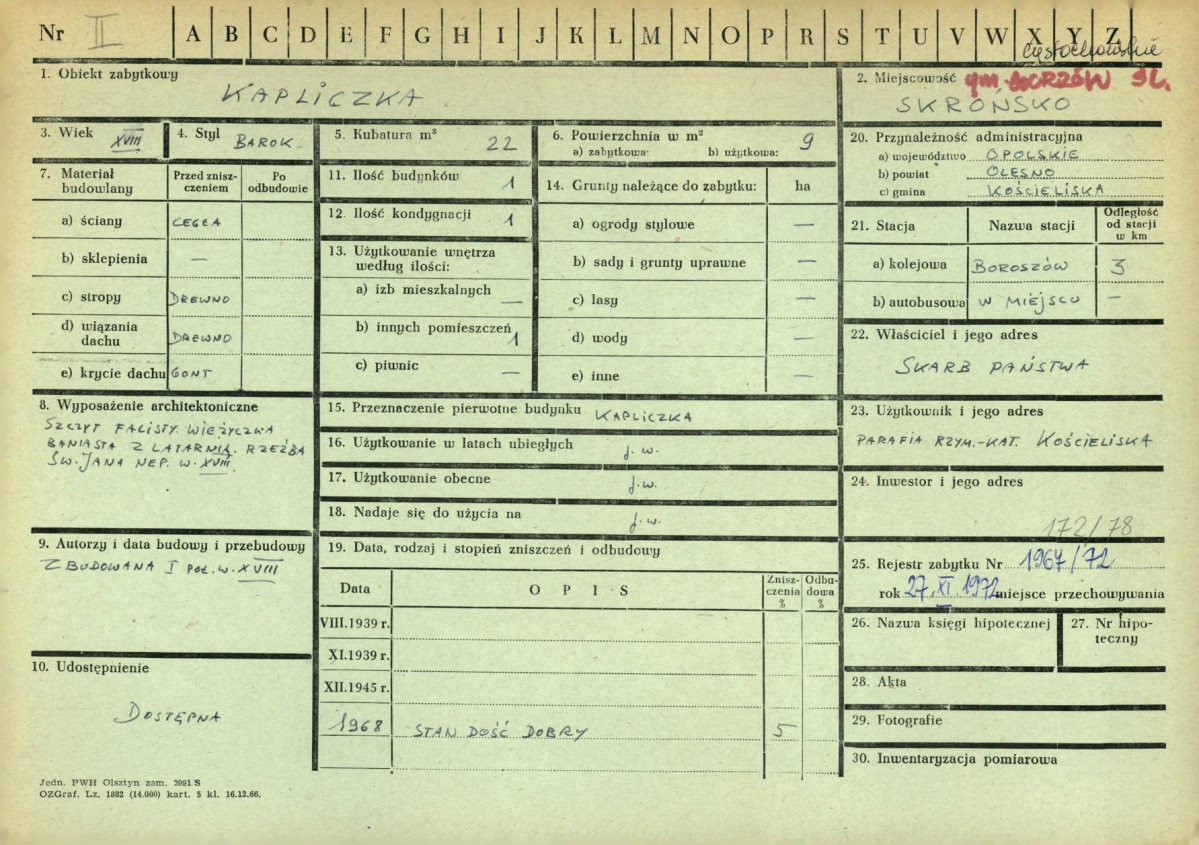 Nr II A B C D E F G H I J K L M N O P R S T U V W X Y Z
częstochowskie
1. Obiekt zabytkowy
KAPLICZKA
2. Miejscowość gm. GORZÓW ŚL.
SKROŃSKO
3. Wiek XVIII
4. Styl BAROK
5. Kubatura m³ 22
6. Powierzchnia w m² 9
a) zabytkowa: b) użytkowa:
7. Materiał budowlany
Przed zniszczeniem
Po odbudowie
a) ściany CEGŁA
b) sklepienia —
c) stropy DREWNO
d) wiązania dachu DREWNO
e) krycie dachu GONT
8. Wyposażenie architektoniczne
SZCZYT FALISTY. WIEŻYCZKA
BANIASTA Z LATARNIĄ. RZEŹBA
ŚW. JANA NEP. W. XVIII.
9. Autorzy i data budowy i przebudowy
ZBUDOWANA I POŁ. W. XVIII
10. Udostępnienie
DOSTĘPNA
11. Ilość budynków 1
12. Ilość kondygnacji 1
13. Użytkowanie wnętrza według ilości:
a) izb mieszkalnych —
b) innych pomieszczeń 1
c) piwnic —
14. Grunty należące do zabytku: ha
a) ogrody stylowe —
b) sady i grunty uprawne —
c) lasy —
d) wody —
e) inne —
15. Przeznaczenie pierwotne budynku KAPLICZKA
16. Użytkowanie w latach ubiegłych j. w.
17. Użytkowanie obecne j. w.
18. Nadaje się do użycia na j. w.
19. Data, rodzaj i stopień zniszczeń i odbudowy
Data OPIS Zniszczenia % Odbudowa %
VIII.1939 r.
XI.1939 r.
XII.1945 r.
1968 STAN DOŚĆ DOBRY 5
20. Przynależność administracyjna
a) województwo OPOLSKIE
b) powiat OLESNO
c) gmina KOŚCIELISKA
21. Stacja Nazwa stacji Odległość od stacji w km
a) kolejowa BOROSZÓW 3
b) autobusowa W MIEJSCU —
22. Właściciel i jego adres
SKARB PAŃSTWA
23. Użytkownik i jego adres
PARAFIA RZYM.-KAT. KOŚCIELISKA
24. Inwestor i jego adres
172/78
25. Rejestr zabytku Nr 1967/72
rok 27.XI.1972 miejsce przechowywania
26. Nazwa księgi hipotecznej
27. Nr hipoteczny
28. Akta
29. Fotografie
30. Inwentaryzacja pomiarowa
Jedn. PWH Olsztyn zam. 3991 S
OZGraf. Lz. 1882 (14.000) kart. 5 kl. 16.12.66.